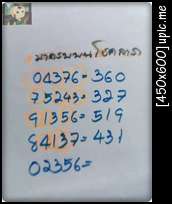 มาตรพบนโชคลาภ
04376=360
75243=327
91356=519
84137=431
02356=
[450x600] upic.me